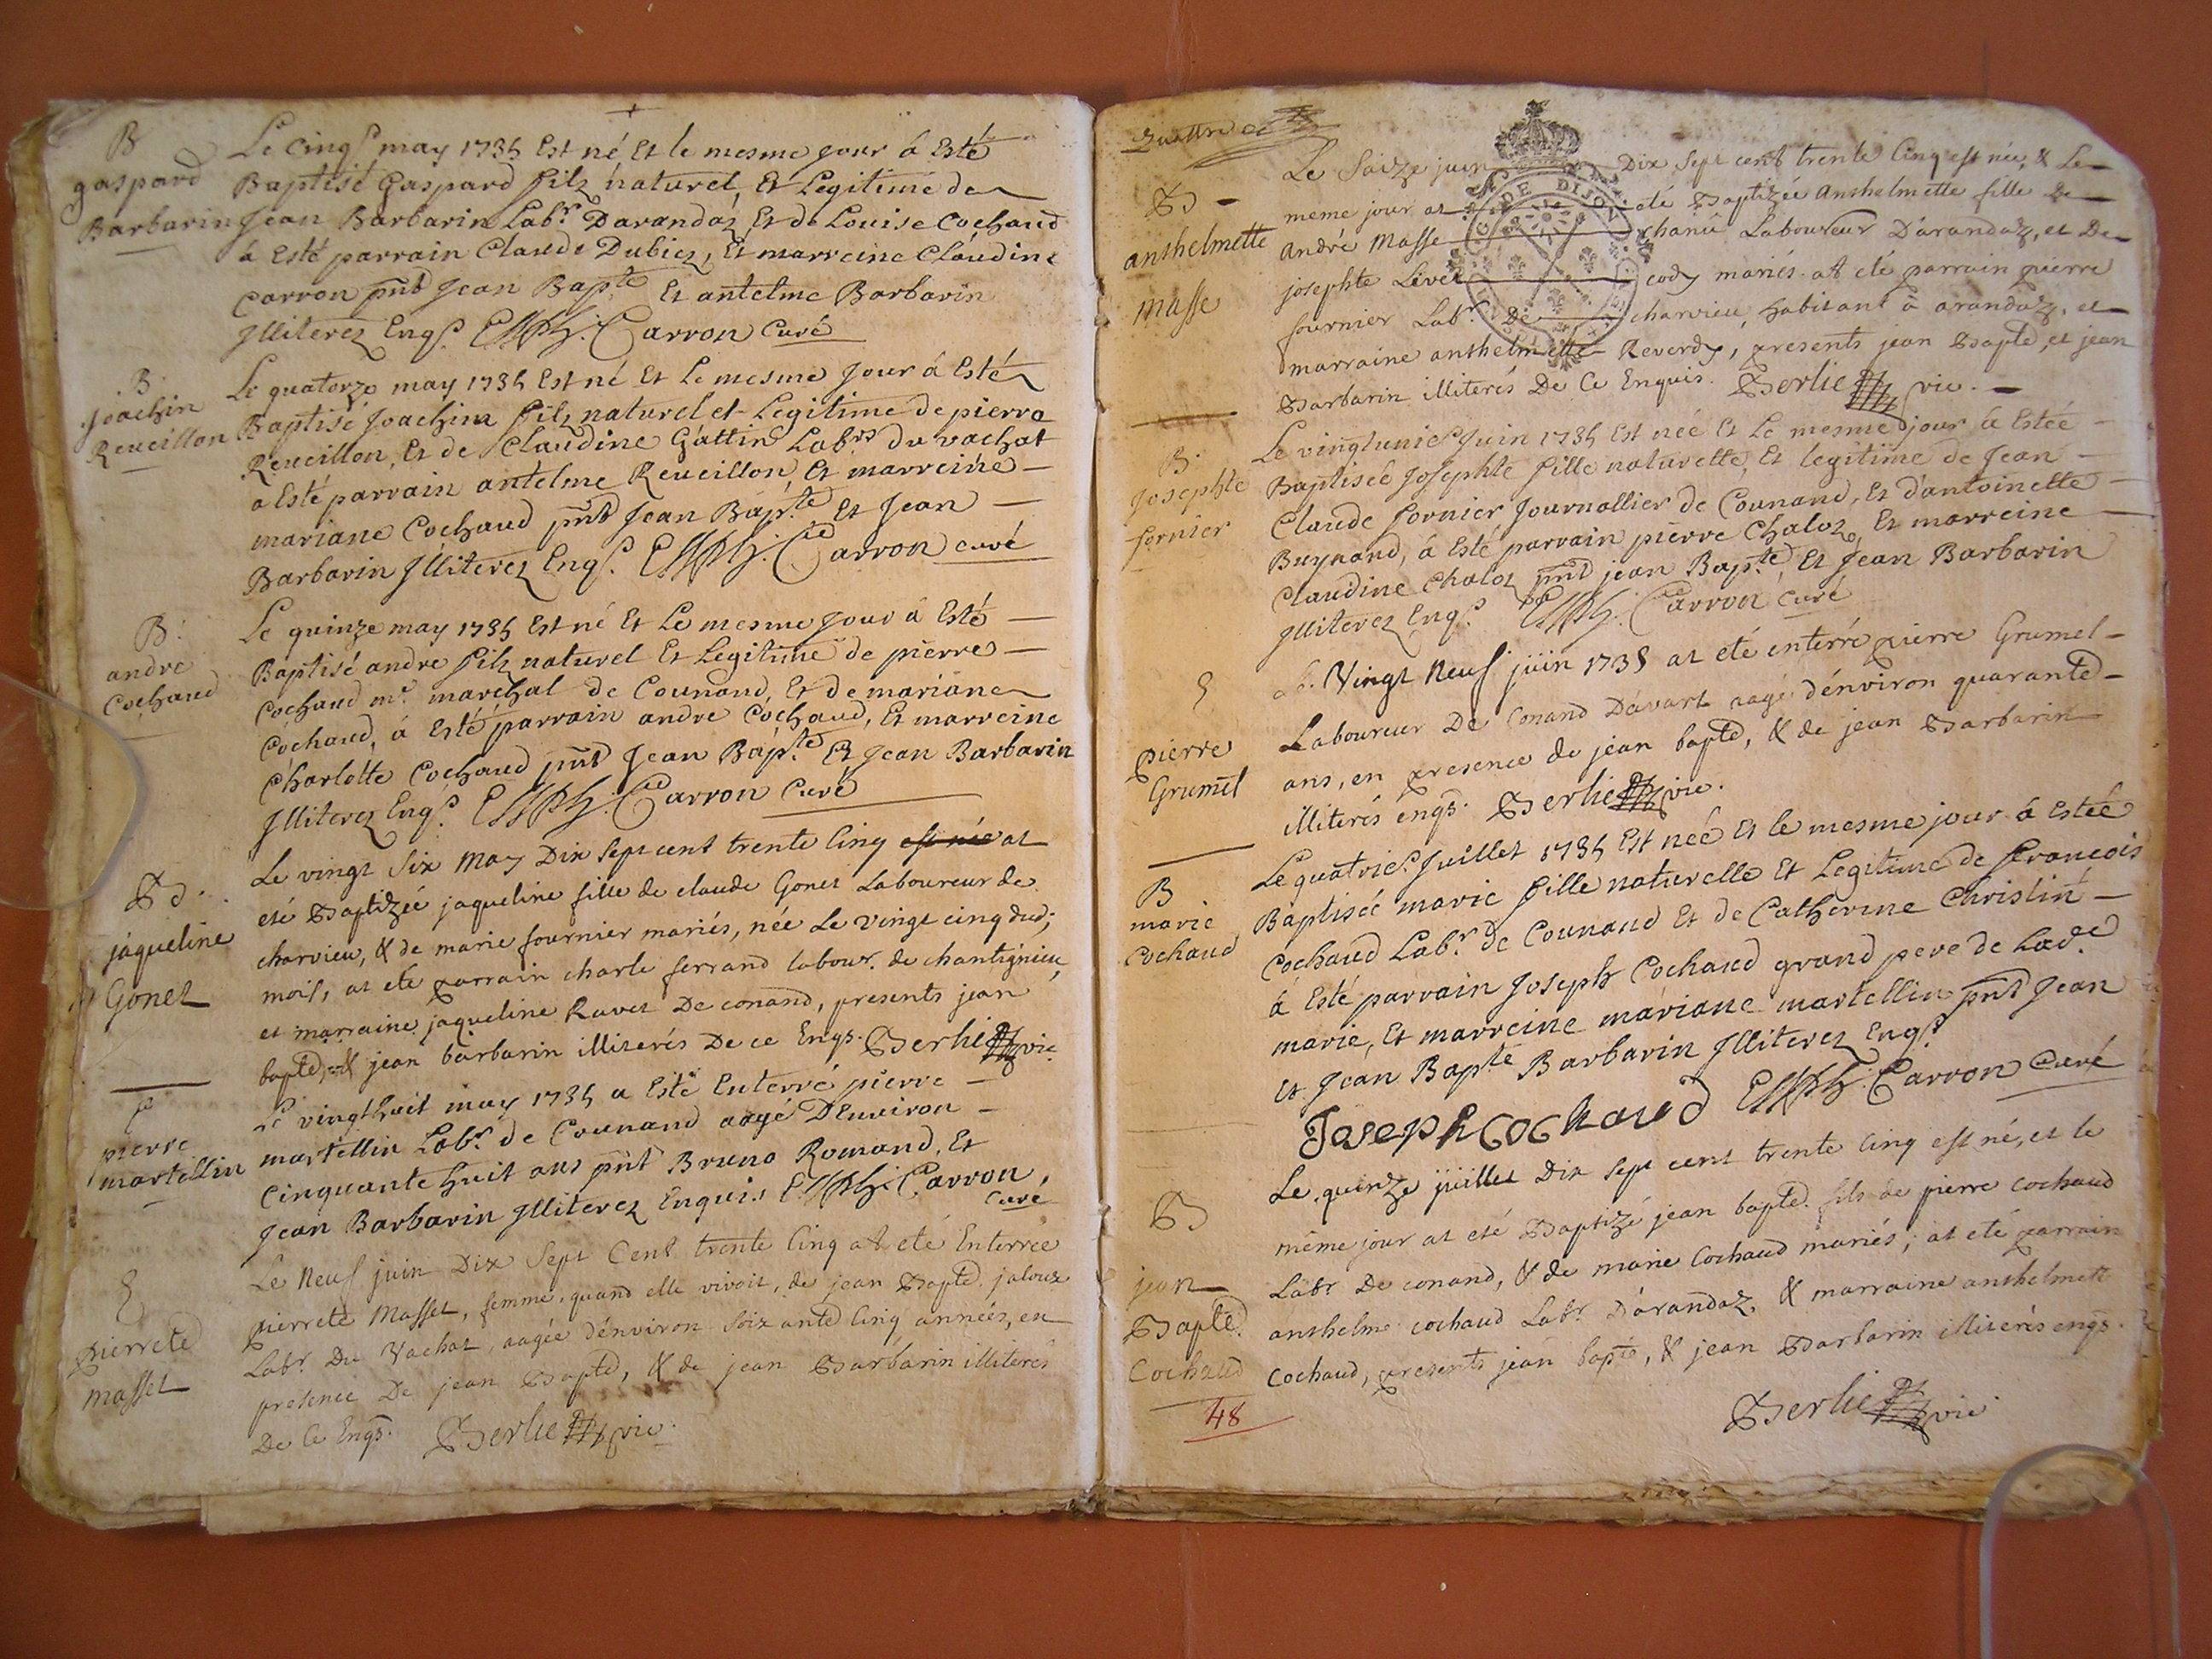 B
gaspard
Barbarin
Le Cinq.e may 1735 Est né Et le mesme jour á Esté
Baptisé Gaspard filz naturel, Et Legitime de
Jean Barbarin Lab.r Darandaz Et de Louise Cochaud
á Esté parrain Claude Dubiez, Et marreine Claudine
Carron pnt Jean Bap.te Et antelme Barbarin
Illiterez Enq.s Carron Curé
B.
Joachin
Reueillon
Le quatorze may 1735 Est né Et Le mesme Jour á Esté
Baptisé Joachim filz naturel et Legitime de pierre
Reueillon, Et de Claudine Gattin Lab.rs du vachat
a Esté parrain antelme Reueillon, Et marreine
mariane Cochaud pnt Jean Bap.te Et Jean
Barbarin Illiterez Enq.s Carron curé
B.
andre
Cochaud
Le quinze may 1735 Est né Et Le mesme Jour á Esté
Baptisé andre filz naturel Et Legitime de pierre
Cochaud m.e maréchal de Counand, Et de mariane
Cochaud, á Esté parrain andre Cochaud, Et marreine
Charlotte Cochaud pnt Jean Bap.te Et Jean Barbarin
Illiterez Enq.s Carron Curé
B.
jaqueline
Gonet
Le vingt Six May Dix Sept cent trente Cinq est née at
eté Baptizée jaqueline fille de claude Gonet Laboureur de
charvieu, & de marie fournier mariés, née Le vingt cinq dud;
mois, at eté parrain charle ferrand labour. de chantignieu,
et marraine jaqueline Ravet De conand, presents jean
bapte, & jean barbarin illiterés De ce Enqs. Berlie vic.
E
pierre
martellin
Le vingthuit may 1735 a Esté Enterré pierre
martellin Lab.r de Counand aagé DEnuiron
Cinquante huit ans pnt Bruno Romand, Et
Jean Barbarin Illiterez Enquis Carron
Curé
E
pierrete
masset
Le Neuf juin Dix Sept Cent trente Cinq at eté Enterrée
pierrete Masset, femme, quand elle vivoit, de jean Bapte. jaloux
Labr. Du Vachat, aagée d'énviron Soixante Cinq années, en
presence De jean Bapte, & de jean Barbarin illiterés
De Ce Enqs. Berlie vic.
Le Saize juin Dix Sept cent trente Cinq est née, & Le
DE DIJON
B
anshelmette
masse
meme jour at eté Baptizée Anshelmette fille De
André Masse chanü Laboureur D'arandaz, et De
josephte Livet cody mariés at eté parrain pierre
fournier Labr. De charvieu, habitant à arandaz, et
marraine anshelmette Reverdy, presents jean Bapte, et jean
Barbarin illiterés De Ce Enquis. Berlie vic.
B.
Josephte
fornier
Le vingtunie.e Juin 1735 Est née Et Le mesme jour á Estée
Baptisée Josephte fille naturelle, Et legitime de Jean
Claude fornier Journallier de Counand, Et d'antoinette
Buynand, á Esté parrain pierre Chaloz, Et marreine
Claudine Chaloz pnt jean Bap.te, Et Jean Barbarin
Illiterez Enq.s Carron Curé
E
pierre
Grumel
Vingt Neuf juin 1735 at eté enterré pierre Grumel
Laboureur De Conand D'avart aagé d'énviron quarante
ans, en presence de jean bapte, & de jean Barbarin
illiterés enqs. Berlie vic.
B
marie
Cochaud
Le quatrie.e Juillet 1735 Est née Et le mesme jour á Estée
Baptisée marie fille naturelle Et Legitime de francois
Cochaud Lab.r de Counand Et de Catherine Christin
á Esté parrain Joseph Cochaud grand pere de Lad.e
marie, Et marreine mariane martellin pnt Jean
Et Jean Bap.te Barbarin Illiterez Enq.s
Joseph Cochaud Carron Curé
B
jean
Bapte.
Cochaud
Le quinze juillet Dix Sept cent trente Cinq est né, et le
même jour at eté Baptizé jean bapte. fils de pierre cochaud
Labr. De conand, & de marie Cochaud mariés; at eté parrain
anshelme cochaud Labr. D'arandaz, & marraine anshelmett
Cochaud, presents jean bapte, & jean Barbarin illiterés enqs.
Berlie vic.
48